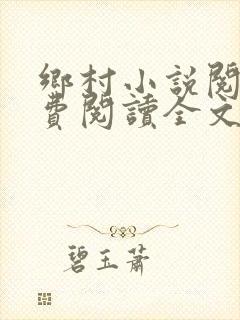 鄉村小説閱
費閱讀全文
碧玉蕭